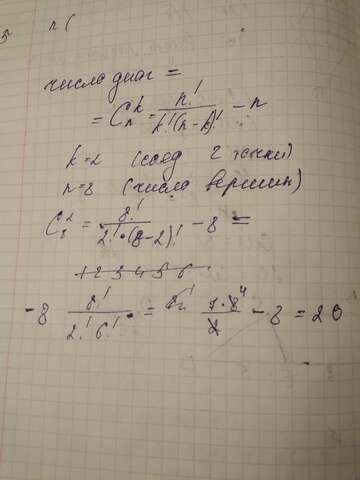 число диаг =
= C_n^k = n! / k!(n-k)! - n
k=2 (соед 2 точки)
n=8 (число вершин)
C_8^2 = 8! / 2!·(8-2)! - 8 =
1 2 3 4 5 6
- 8 8! / 2! 6! = 7·8 4 / 2 - 8 = 20